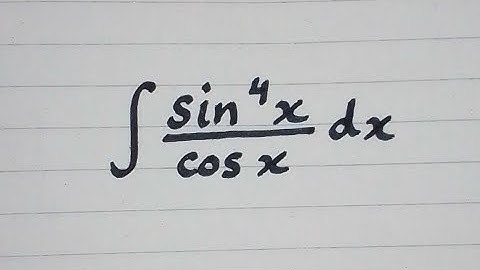 ∫ sin⁴x / cos x dx